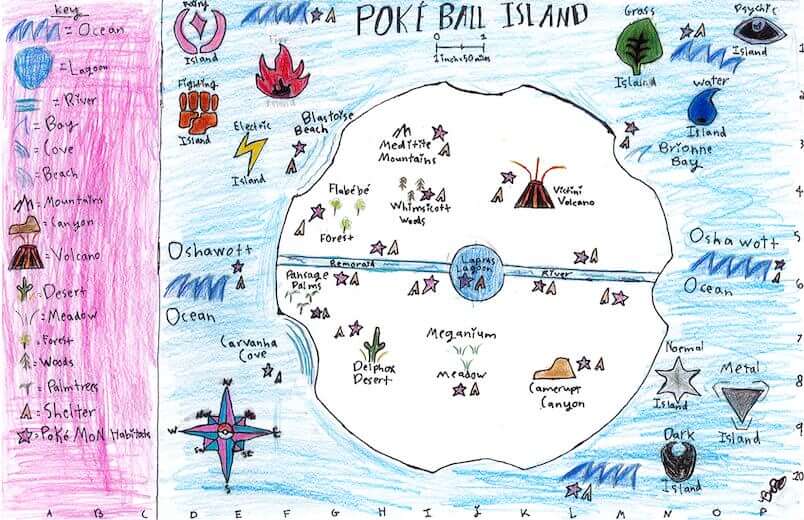 Key
= Ocean
= Lagoon
= River
= Bay
= Cove
= Beach
= Mountains
= Canyon
= Volcano
= Desert
= Meadow
= Forest
= Woods
= Palmtrees
= Shelter
= Poké MoN Habitats
POKÉ BALL ISLAND
0 1
1 inch=50 miles
Fairy
Island
Fire
Island
Grass
Island
Psychic
Island
Fighting
Island
Electric
Island
Water
Island
Blastoise
Beach
Meditite
Mountains
Brionne
Bay
Flabébé
Forest
Whimsicott
Woods
Victini
Volcano
Oshawott
Ocean
Oshawott
Ocean
Remoraid
Lapras
Lagoon
River
Pansage
Palms
Carvanha
Cove
Delphox
Desert
Meganium
Meadow
Camerupt
Canyon
Normal
Island
Metal
Island
Dark
Island
N
W E
SW SE
S
1
2
3
4
5
6
7
8
9
10
A B C D E F G H I J K L M N O P